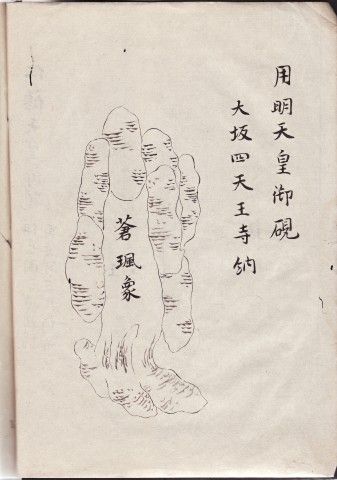 用明天皇御硯
大坂四天王寺納
蒼颯象